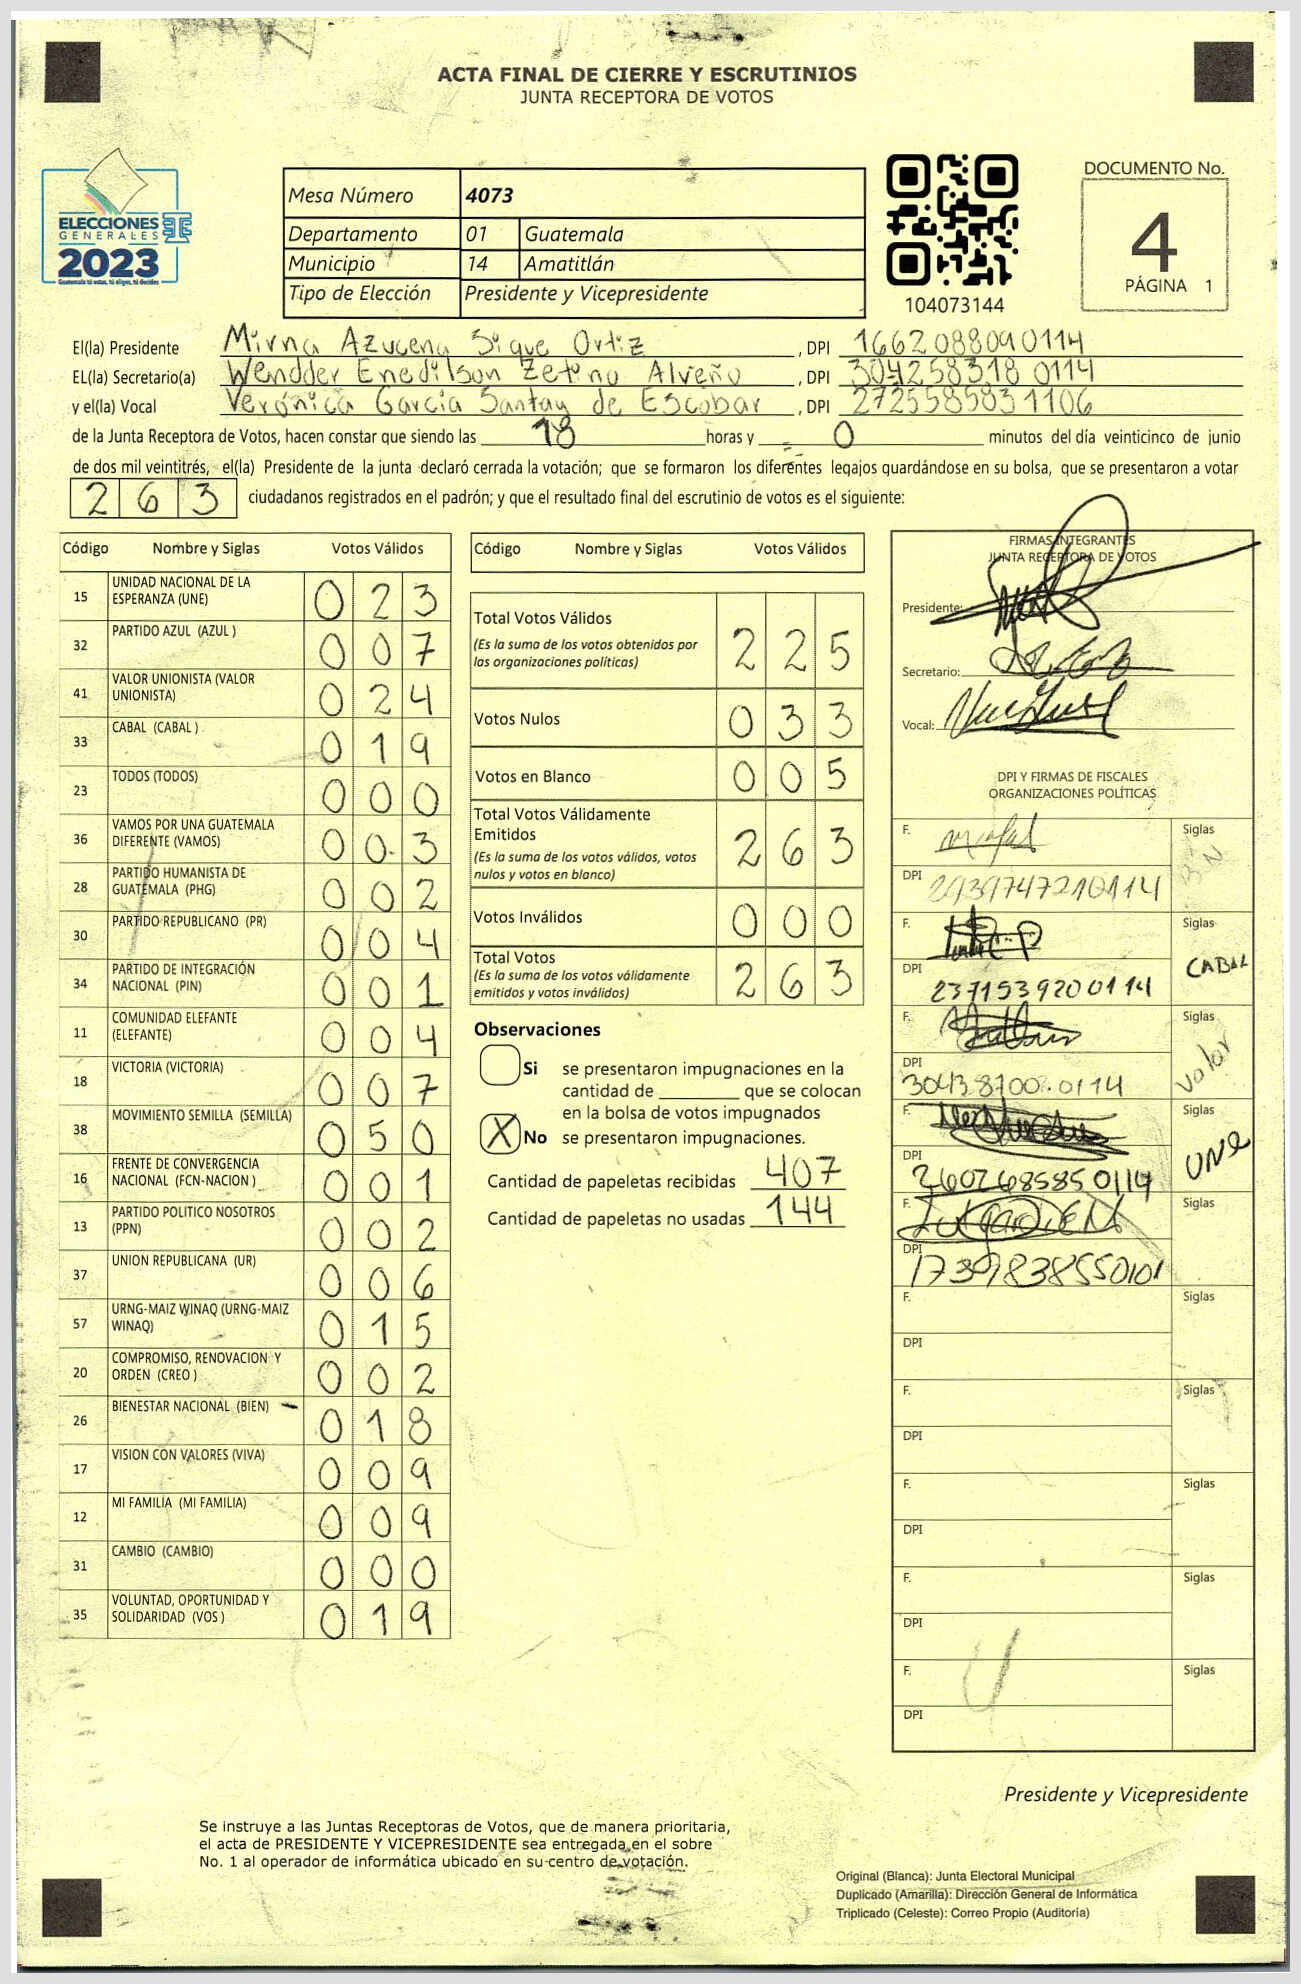 ACTA FINAL DE CIERRE Y ESCRUTINIOS
JUNTA RECEPTORA DE VOTOS
ELECCIONES
GENERALES
2023
Guatemala tú votas, tú eliges, tú decides
Mesa Número 4073
Departamento 01 Guatemala
Municipio 14 Amatitlán
Tipo de Elección Presidente y Vicepresidente
104073144
DOCUMENTO No.
4
PÁGINA 1
El(la) Presidente Mirna Azucena Sique Ortiz, DPI 1662088090114
EL(la) Secretario(a) Wendder Enedilson Zetino Alveño, DPI 3042583180114
y el(la) Vocal Verónica García Santay de Escobar, DPI 2725585831106
de la Junta Receptora de Votos, hacen constar que siendo las 18 horas y 0 minutos del día veinticinco de junio
de dos mil veintitrés, el(la) Presidente de la junta declaró cerrada la votación; que se formaron los diferentes legajos guardándose en su bolsa, que se presentaron a votar
263 ciudadanos registrados en el padrón; y que el resultado final del escrutinio de votos es el siguiente:
Código Nombre y Siglas Votos Válidos
15 UNIDAD NACIONAL DE LA ESPERANZA (UNE) 023
32 PARTIDO AZUL (AZUL ) 007
41 VALOR UNIONISTA (VALOR UNIONISTA) 024
33 CABAL (CABAL ) 019
23 TODOS (TODOS) 000
36 VAMOS POR UNA GUATEMALA DIFERENTE (VAMOS) 003
28 PARTIDO HUMANISTA DE GUATEMALA (PHG) 002
30 PARTIDO REPUBLICANO (PR) 004
34 PARTIDO DE INTEGRACIÓN NACIONAL (PIN) 001
11 COMUNIDAD ELEFANTE (ELEFANTE) 004
18 VICTORIA (VICTORIA) 007
38 MOVIMIENTO SEMILLA (SEMILLA) 050
16 FRENTE DE CONVERGENCIA NACIONAL (FCN-NACION ) 001
13 PARTIDO POLITICO NOSOTROS (PPN) 002
37 UNION REPUBLICANA (UR) 006
57 URNG-MAIZ WINAQ (URNG-MAIZ WINAQ) 015
20 COMPROMISO, RENOVACION Y ORDEN (CREO ) 002
26 BIENESTAR NACIONAL (BIEN) 018
17 VISION CON VALORES (VIVA) 009
12 MI FAMILIA (MI FAMILIA) 009
31 CAMBIO (CAMBIO) 000
35 VOLUNTAD, OPORTUNIDAD Y SOLIDARIDAD (VOS ) 019
Código Nombre y Siglas Votos Válidos
Total Votos Válidos 225
(Es la suma de los votos obtenidos por
las organizaciones políticas)
Votos Nulos 033
Votos en Blanco 005
Total Votos Válidamente
Emitidos 263
(Es la suma de los votos válidos, votos
nulos y votos en blanco)
Votos Inválidos 000
Total Votos 263
(Es la suma de los votos válidamente
emitidos y votos inválidos)
Observaciones
Si se presentaron impugnaciones en la
cantidad de ________ que se colocan
en la bolsa de votos impugnados
X No se presentaron impugnaciones.
Cantidad de papeletas recibidas 407
Cantidad de papeletas no usadas 144
FIRMAS INTEGRANTES
JUNTA RECEPTORA DE VOTOS
Presidente:
Secretario:
Vocal:
DPI Y FIRMAS DE FISCALES
ORGANIZACIONES POLÍTICAS
F. Siglas
DPI 2939747210114
F. Siglas CABAL
DPI 2371539200114
F. Siglas Valor
DPI
F. Siglas UNE
DPI 2602685850114
F. Siglas
DPI 1739838550101
F. Siglas
DPI
F. Siglas
DPI
F. Siglas
DPI
F. Siglas
DPI
F. Siglas
DPI
Presidente y Vicepresidente
Se instruye a las Juntas Receptoras de Votos, que de manera prioritaria,
el acta de PRESIDENTE Y VICEPRESIDENTE sea entregada en el sobre
No. 1 al operador de informática ubicado en su centro de votación.
Original (Blanca): Junta Electoral Municipal
Duplicado (Amarilla): Dirección General de Informática
Triplicado (Celeste): Correo Propio (Auditoría)